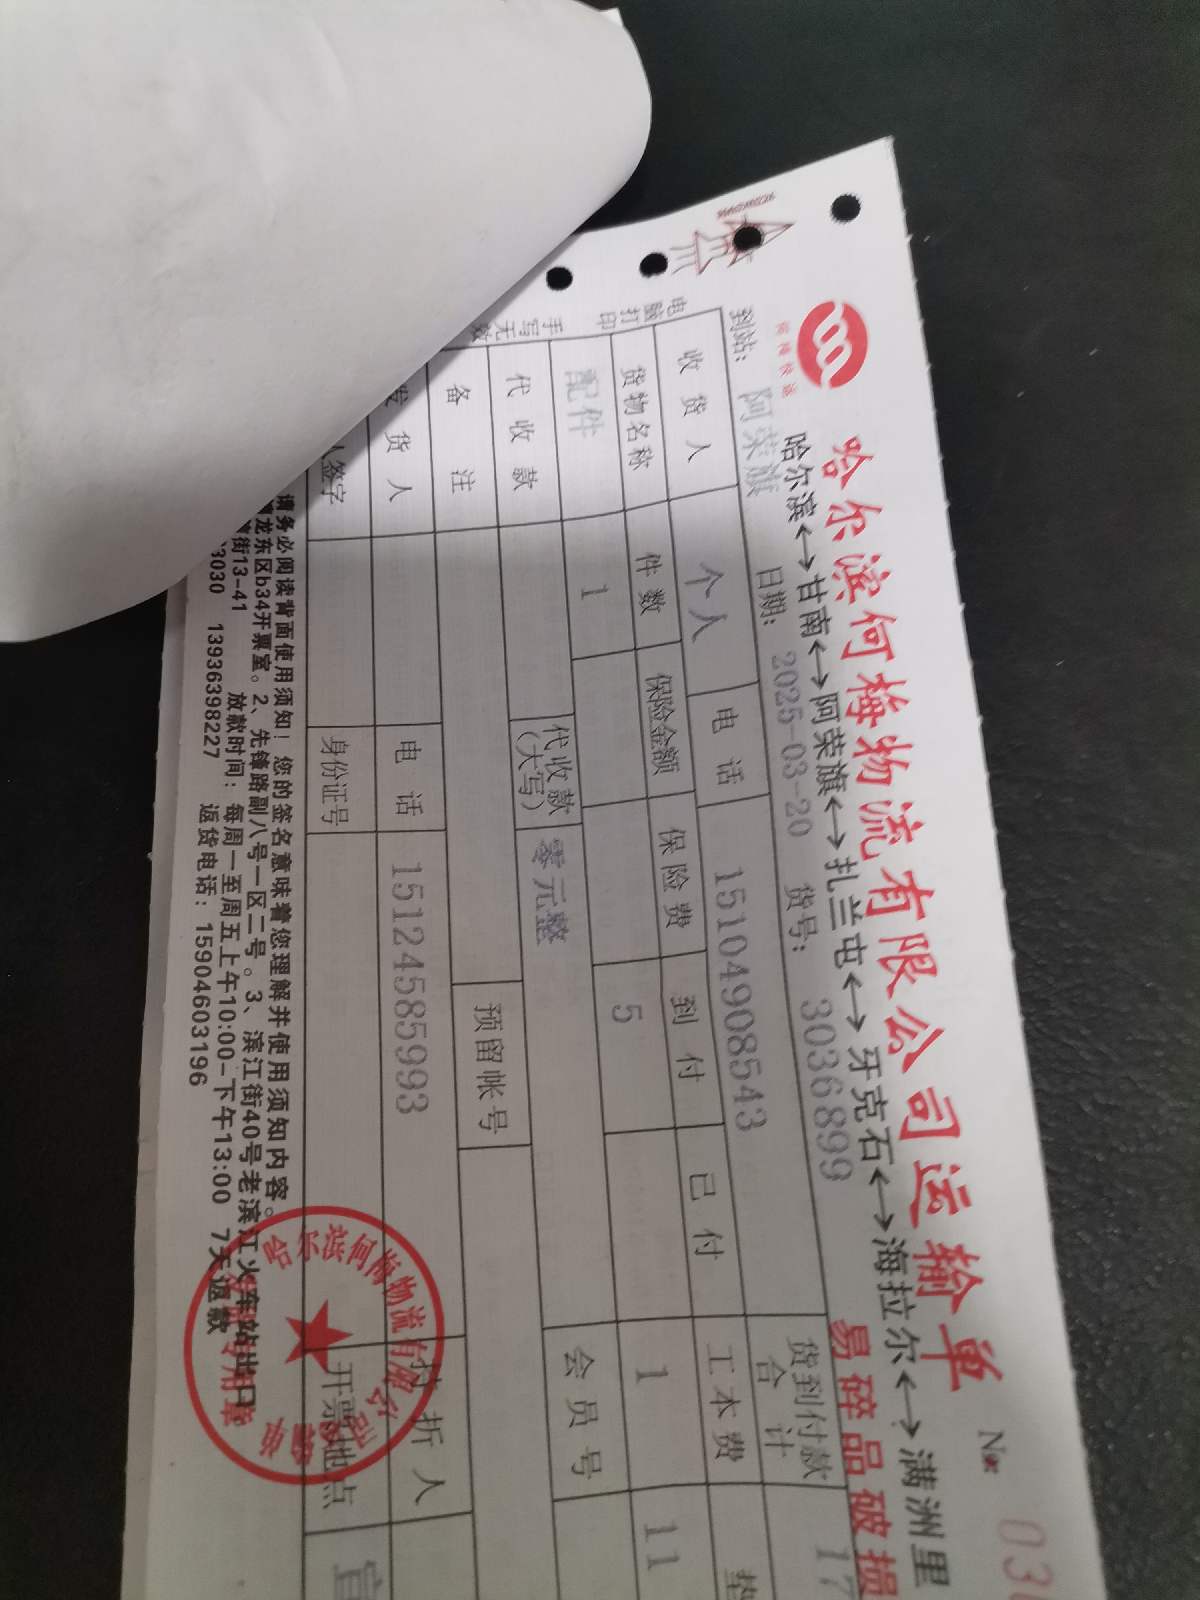 哈尔滨何梅物流有限公司运输单
№: 030
哈尔滨↔甘南↔阿荣旗↔扎兰屯↔牙克石↔海拉尔↔满洲里
到站: 阿荣旗 日期: 2025-03-20 货号: 3036899 易碎品破损
收货人 个人 电话 15104908543 货到付款合计 17
货物名称 件数 保险金额 保险费 到付 已付 工本费 垫
配件 1 5 1 11
代收款 代收款(大写) 零元整 会员号
备注 预留帐号
发货人 电话 15124585993 持折人
人签字 身份证号 开票地点
电脑打印 手写无效
请务必阅读背面使用须知!您的签名意味着您理解并使用须知内容。
龙东区b34开票室。2、先锋路副八号一区二号。3、滨江街40号老滨江火车站出口。
街13-41 放款时间:每周一至周五上午10:00-下午13:00 7天返款
3030 13936398227 返货电话:15904603196
哈尔滨何梅物流有限公司